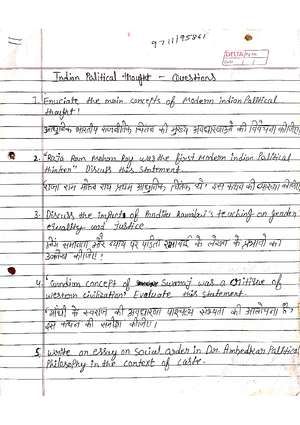 9711195861
DELTA Pg No.
Date / /
Indian Political thought - Questions
1. Enuciate the main concepts of Modern indian Political
thought!
आधुनिक भारतीय राजनीतिक चिंतन की मुख्य अवधारणाओं की विवेचना कीजिए
2. "Raja Ram Mohan Roy was the first Modern indian Political
thinker" Discuss this statement.
राजा राम मोहन राय प्रथम आधुनिक चिंतक थे। इस कथन की व्याख्या कीजिए
3. Discuss the impact of Pandita Ramabai's teaching on gender
equality and justice
लिंग समानता और न्याय पर पंडिता रमाबाई के लेखन के प्रभावों का
उल्लेख कीजिए!
4. "Gandian concept of Swaraj was a critique of
western civilization" Evaluate this statement.
"गांधी के स्वराज की अवधारणा पाश्चात्य सभ्यता की आलोचना है"
इस कथन की समीक्षा कीजिए।
5. write an essay on social order in Dr. Ambedkar Political
Philosophy in the context of caste.